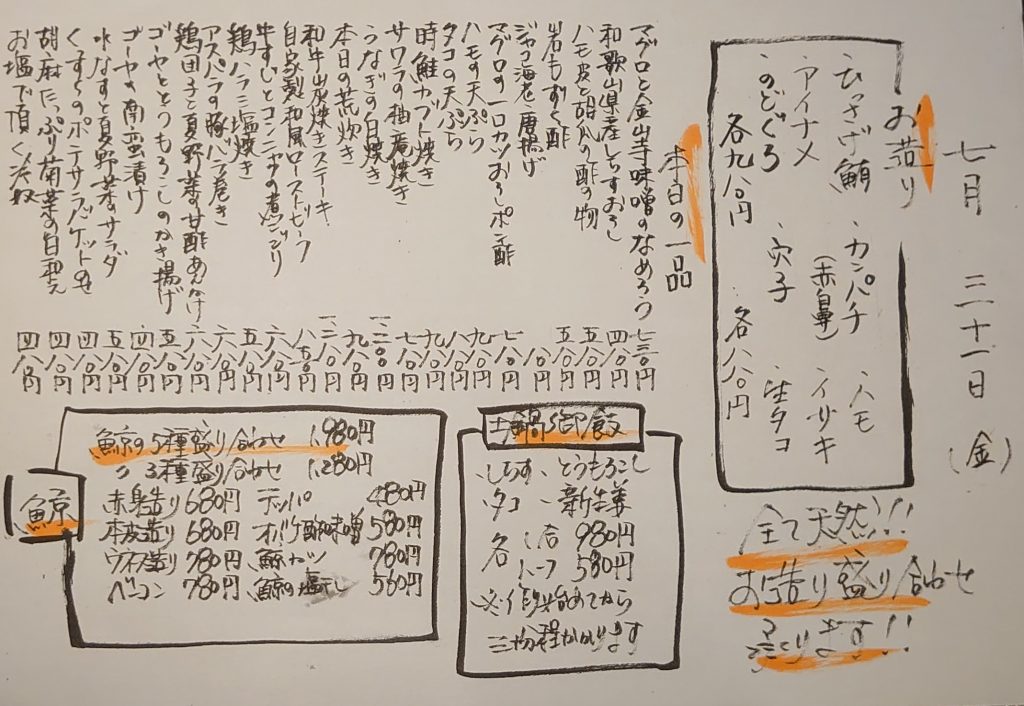 七月三十一日(金)
お造り
・ひっさげ鮪 ・カンパチ ・ハモ
(赤鼻)
・アイナメ ・イサキ
・のどぐろ ・穴子 ・生タコ
各九八〇円 各八八〇円
全て天然!!
お造り盛り合わせ
承ります!!
本日の一品
マグロと金山寺味噌のなめろう 七三〇円
和歌山県産しらすおろし 四八〇円
ハモ皮と胡瓜の酢の物 五八〇円
岩もずく酢 五八〇円
ジャコ海老唐揚げ
マグロの一口カツおろしポン酢
タコの天ぷら
ハモの天ぷら
時鮭カブト焼き
サワラの柚庵焼き
うなぎの白焼き
本日の荒炊き
和牛炭焼きステーキ
自家製和風ローストビーフ
牛すじとコンニャクの煮こごり
鶏ハラミ塩焼き
アスパラの豚バラ巻き
鶏団子と夏野菜の甘酢あんかけ
ゴーヤととうもろこしのかき揚げ
ゴーヤの南蛮漬け
水なすと夏野菜のサラダ
くずし のポテサラ バケット
胡麻たっぷり菊菜の白和え
お塩で頂く冷奴 四八〇円
土鍋御飯
・しらす ・とうもろこし
・タコ ・新生姜
各 一合 980円
ハーフ 580円
※作り始めてから
三十分程かかります
鯨
鯨の5種盛り合わせ 1,980円
〃 3種盛り合わせ 1,280円
赤身造り 680円 テッパ 480円
本皮造り 680円 オバケ酢味噌 580円
ウネス造り 780円 鯨カツ 780円
ベーコン 780円 鯨の塩干し 560円